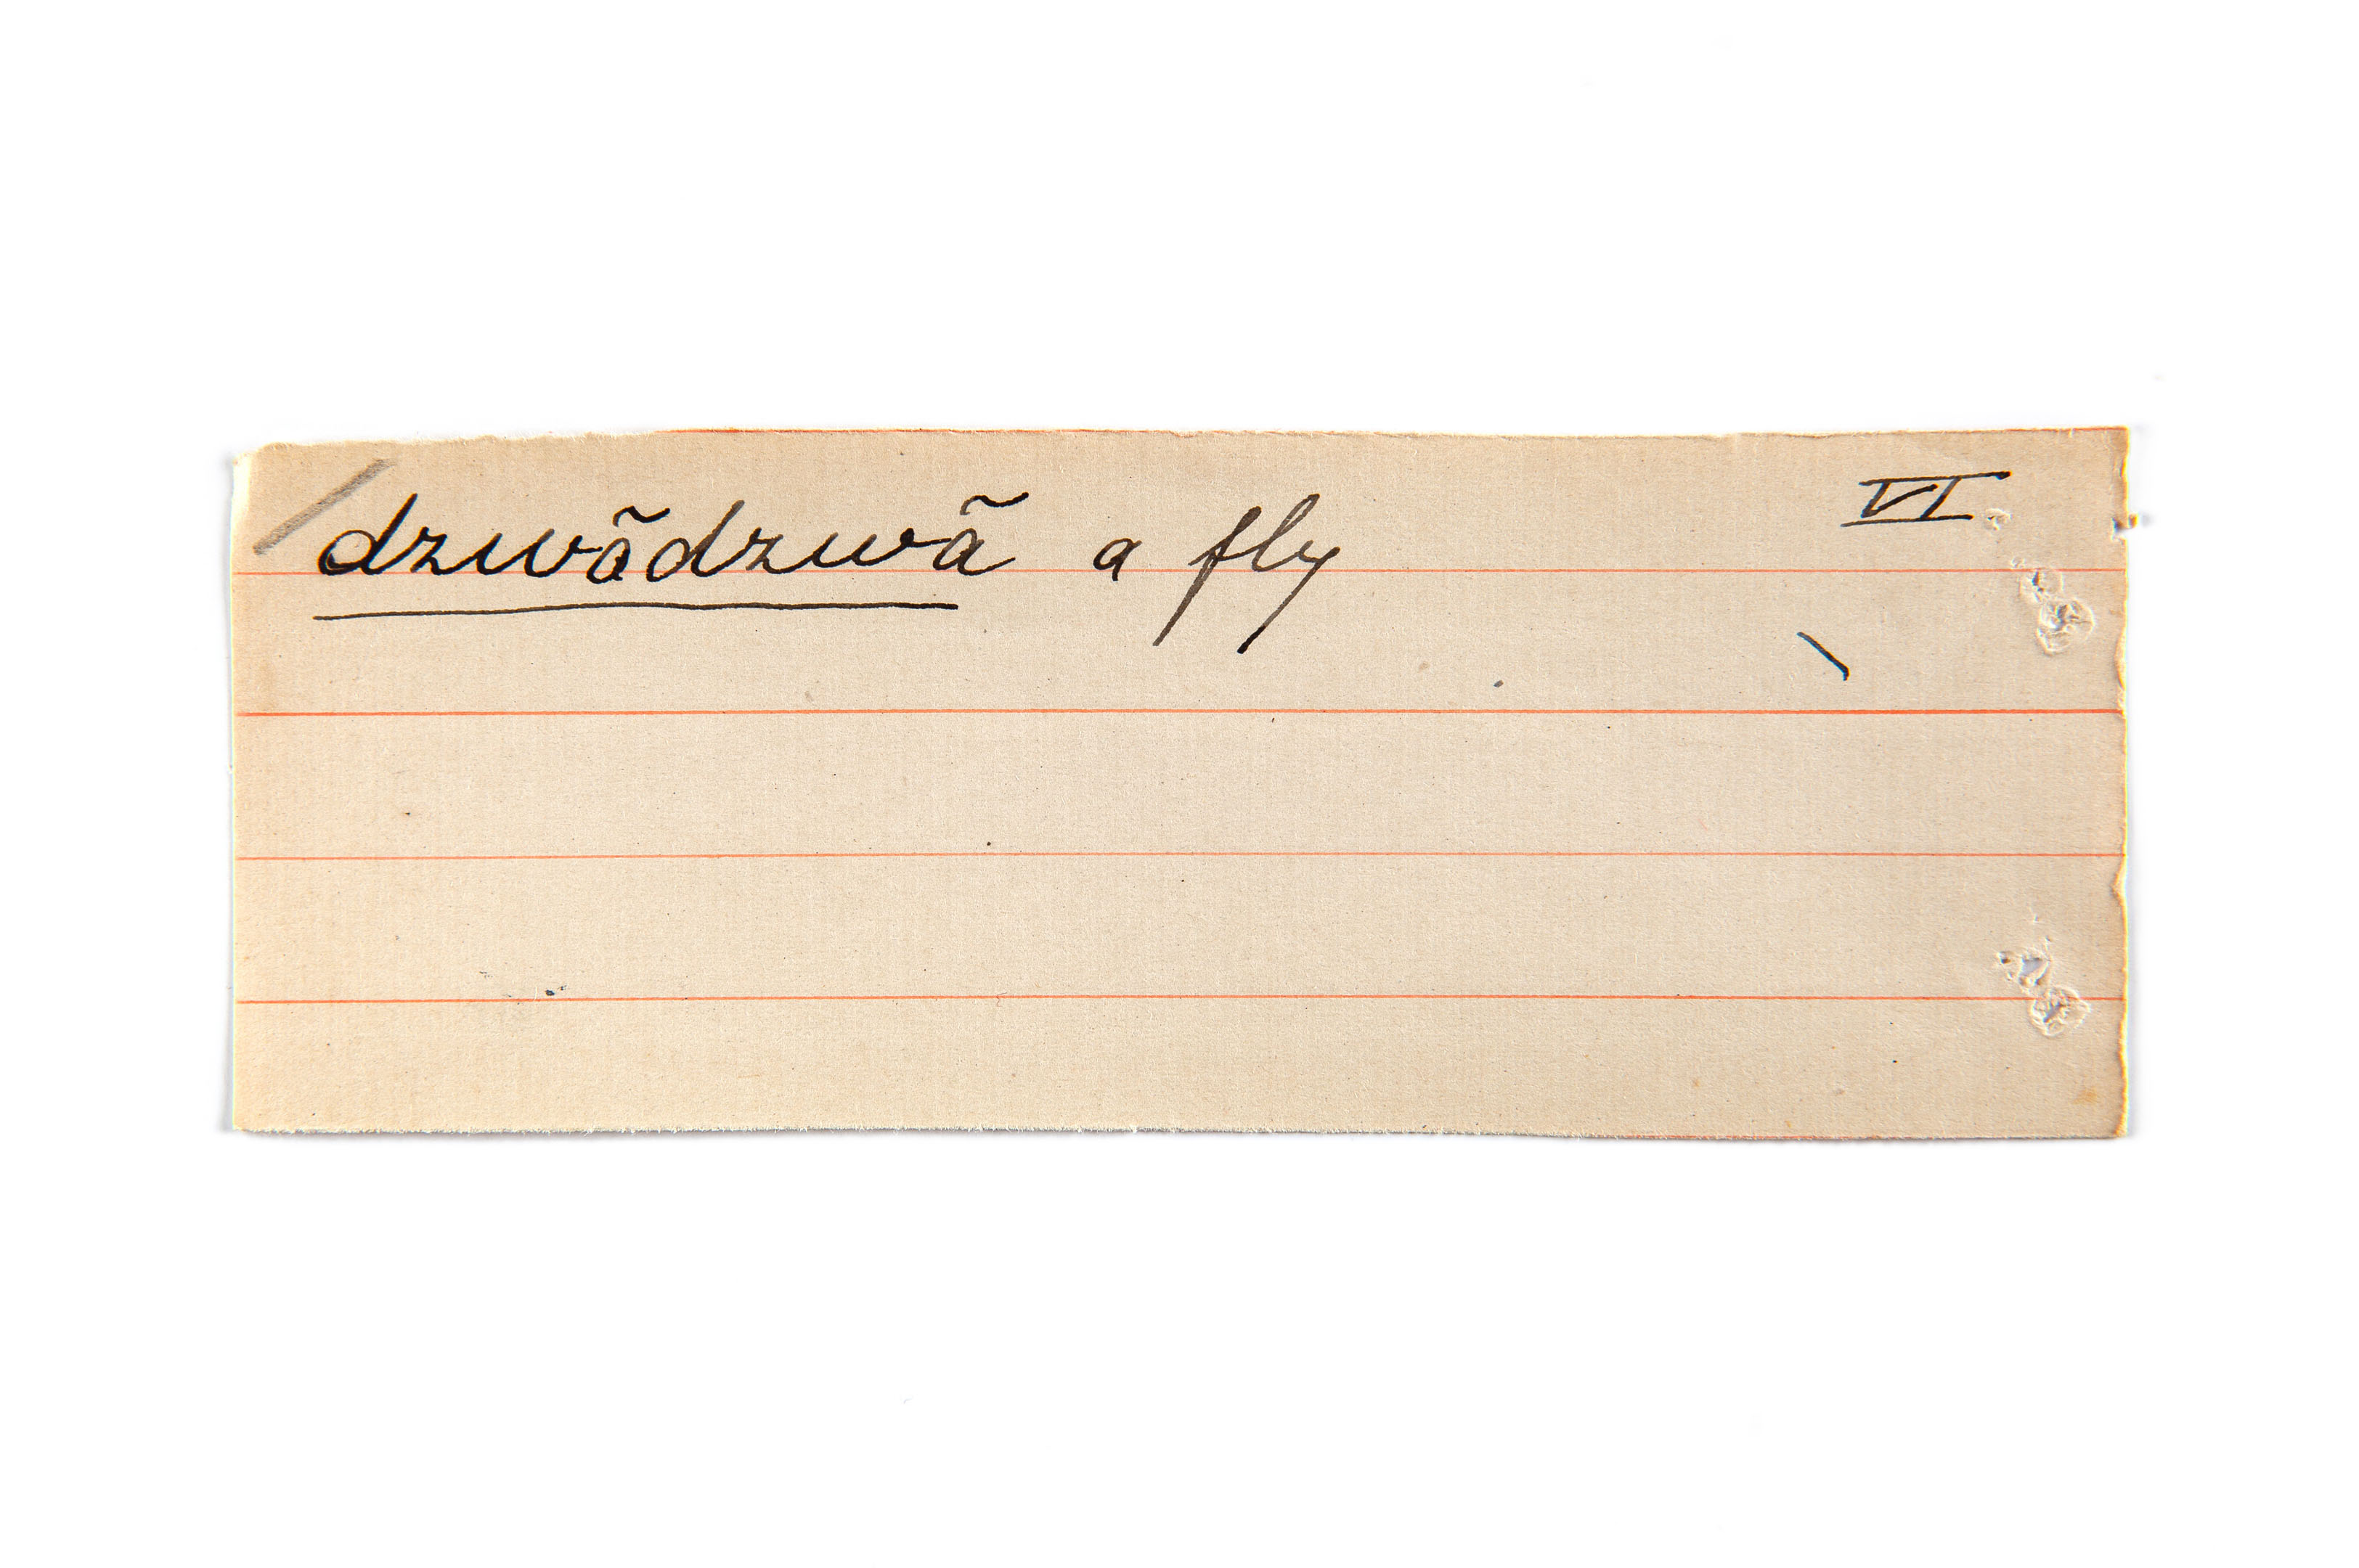 dzwãdzwã a fly VI